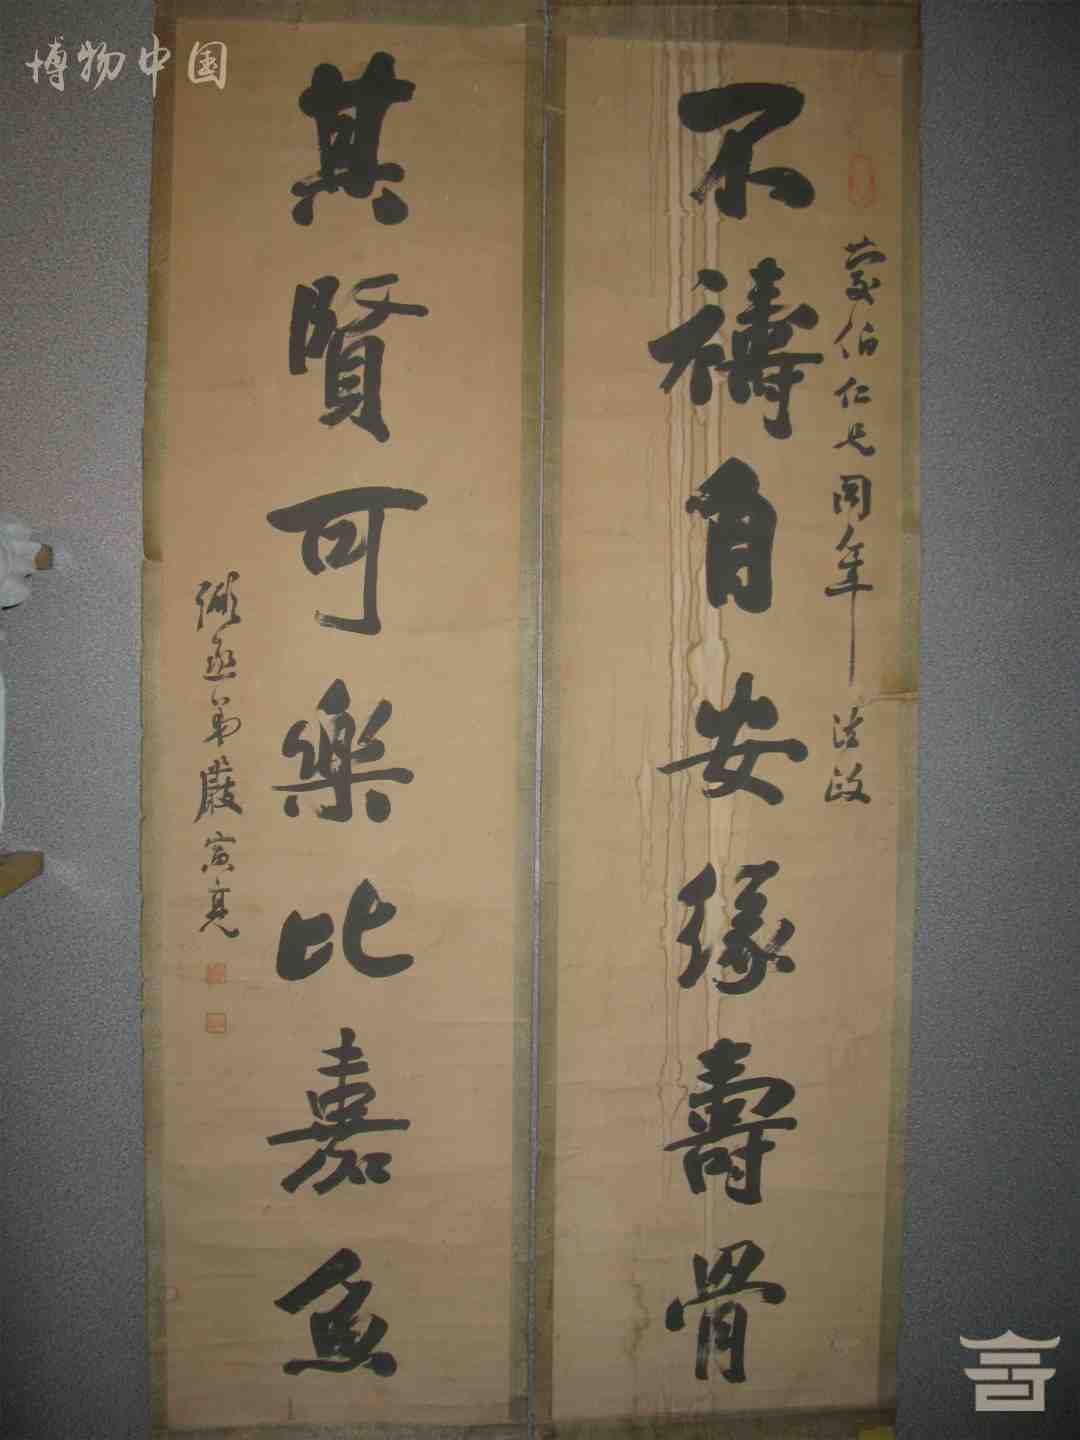 博物中国
蒙伯仁兄同年 法政
不禱自安緣壽骨
其賢可樂比嘉魚
弼丞弟嚴寅亮